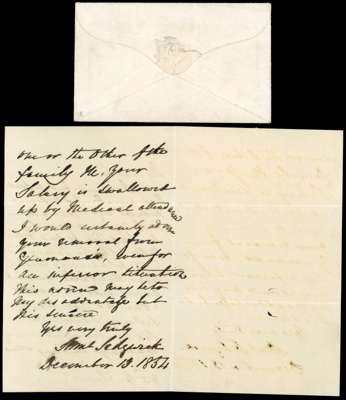 one or the other of the
family ill, your
Salary is swallowed
up by Medical attend
I would certainly
your removal from
even for
an inferior situation
this advice may be to
my disadvantage but
tis sincere
Yrs very truly
Sedgwick
December 13. 1854